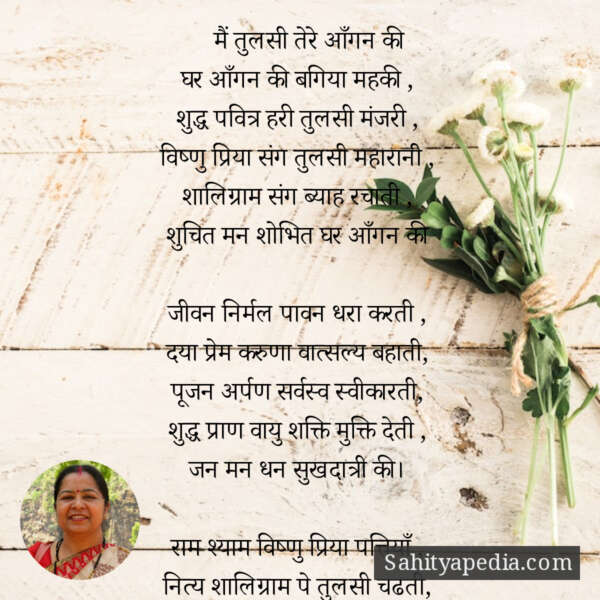 मैं तुलसी तेरे आँगन की
घर आँगन की बगिया महकी ,
शुद्ध पवित्र हरी तुलसी मंजरी ,
विष्णु प्रिया संग तुलसी महारानी ,
शालिग्राम संग ब्याह रचाती ,
शुचित मन शोभित घर आँगन की
जीवन निर्मल पावन धरा करती ,
दया प्रेम करुणा वात्सल्य बहाती,
पूजन अर्पण सर्वस्व स्वीकारती,
शुद्ध प्राण वायु शक्ति मुक्ति देती ,
जन मन धन सुखदात्री की।
राम श्याम विष्णु प्रिया पत्तियाँ
नित्य शालिग्राम पे तुलसी चढती,
Sahityapedia.com